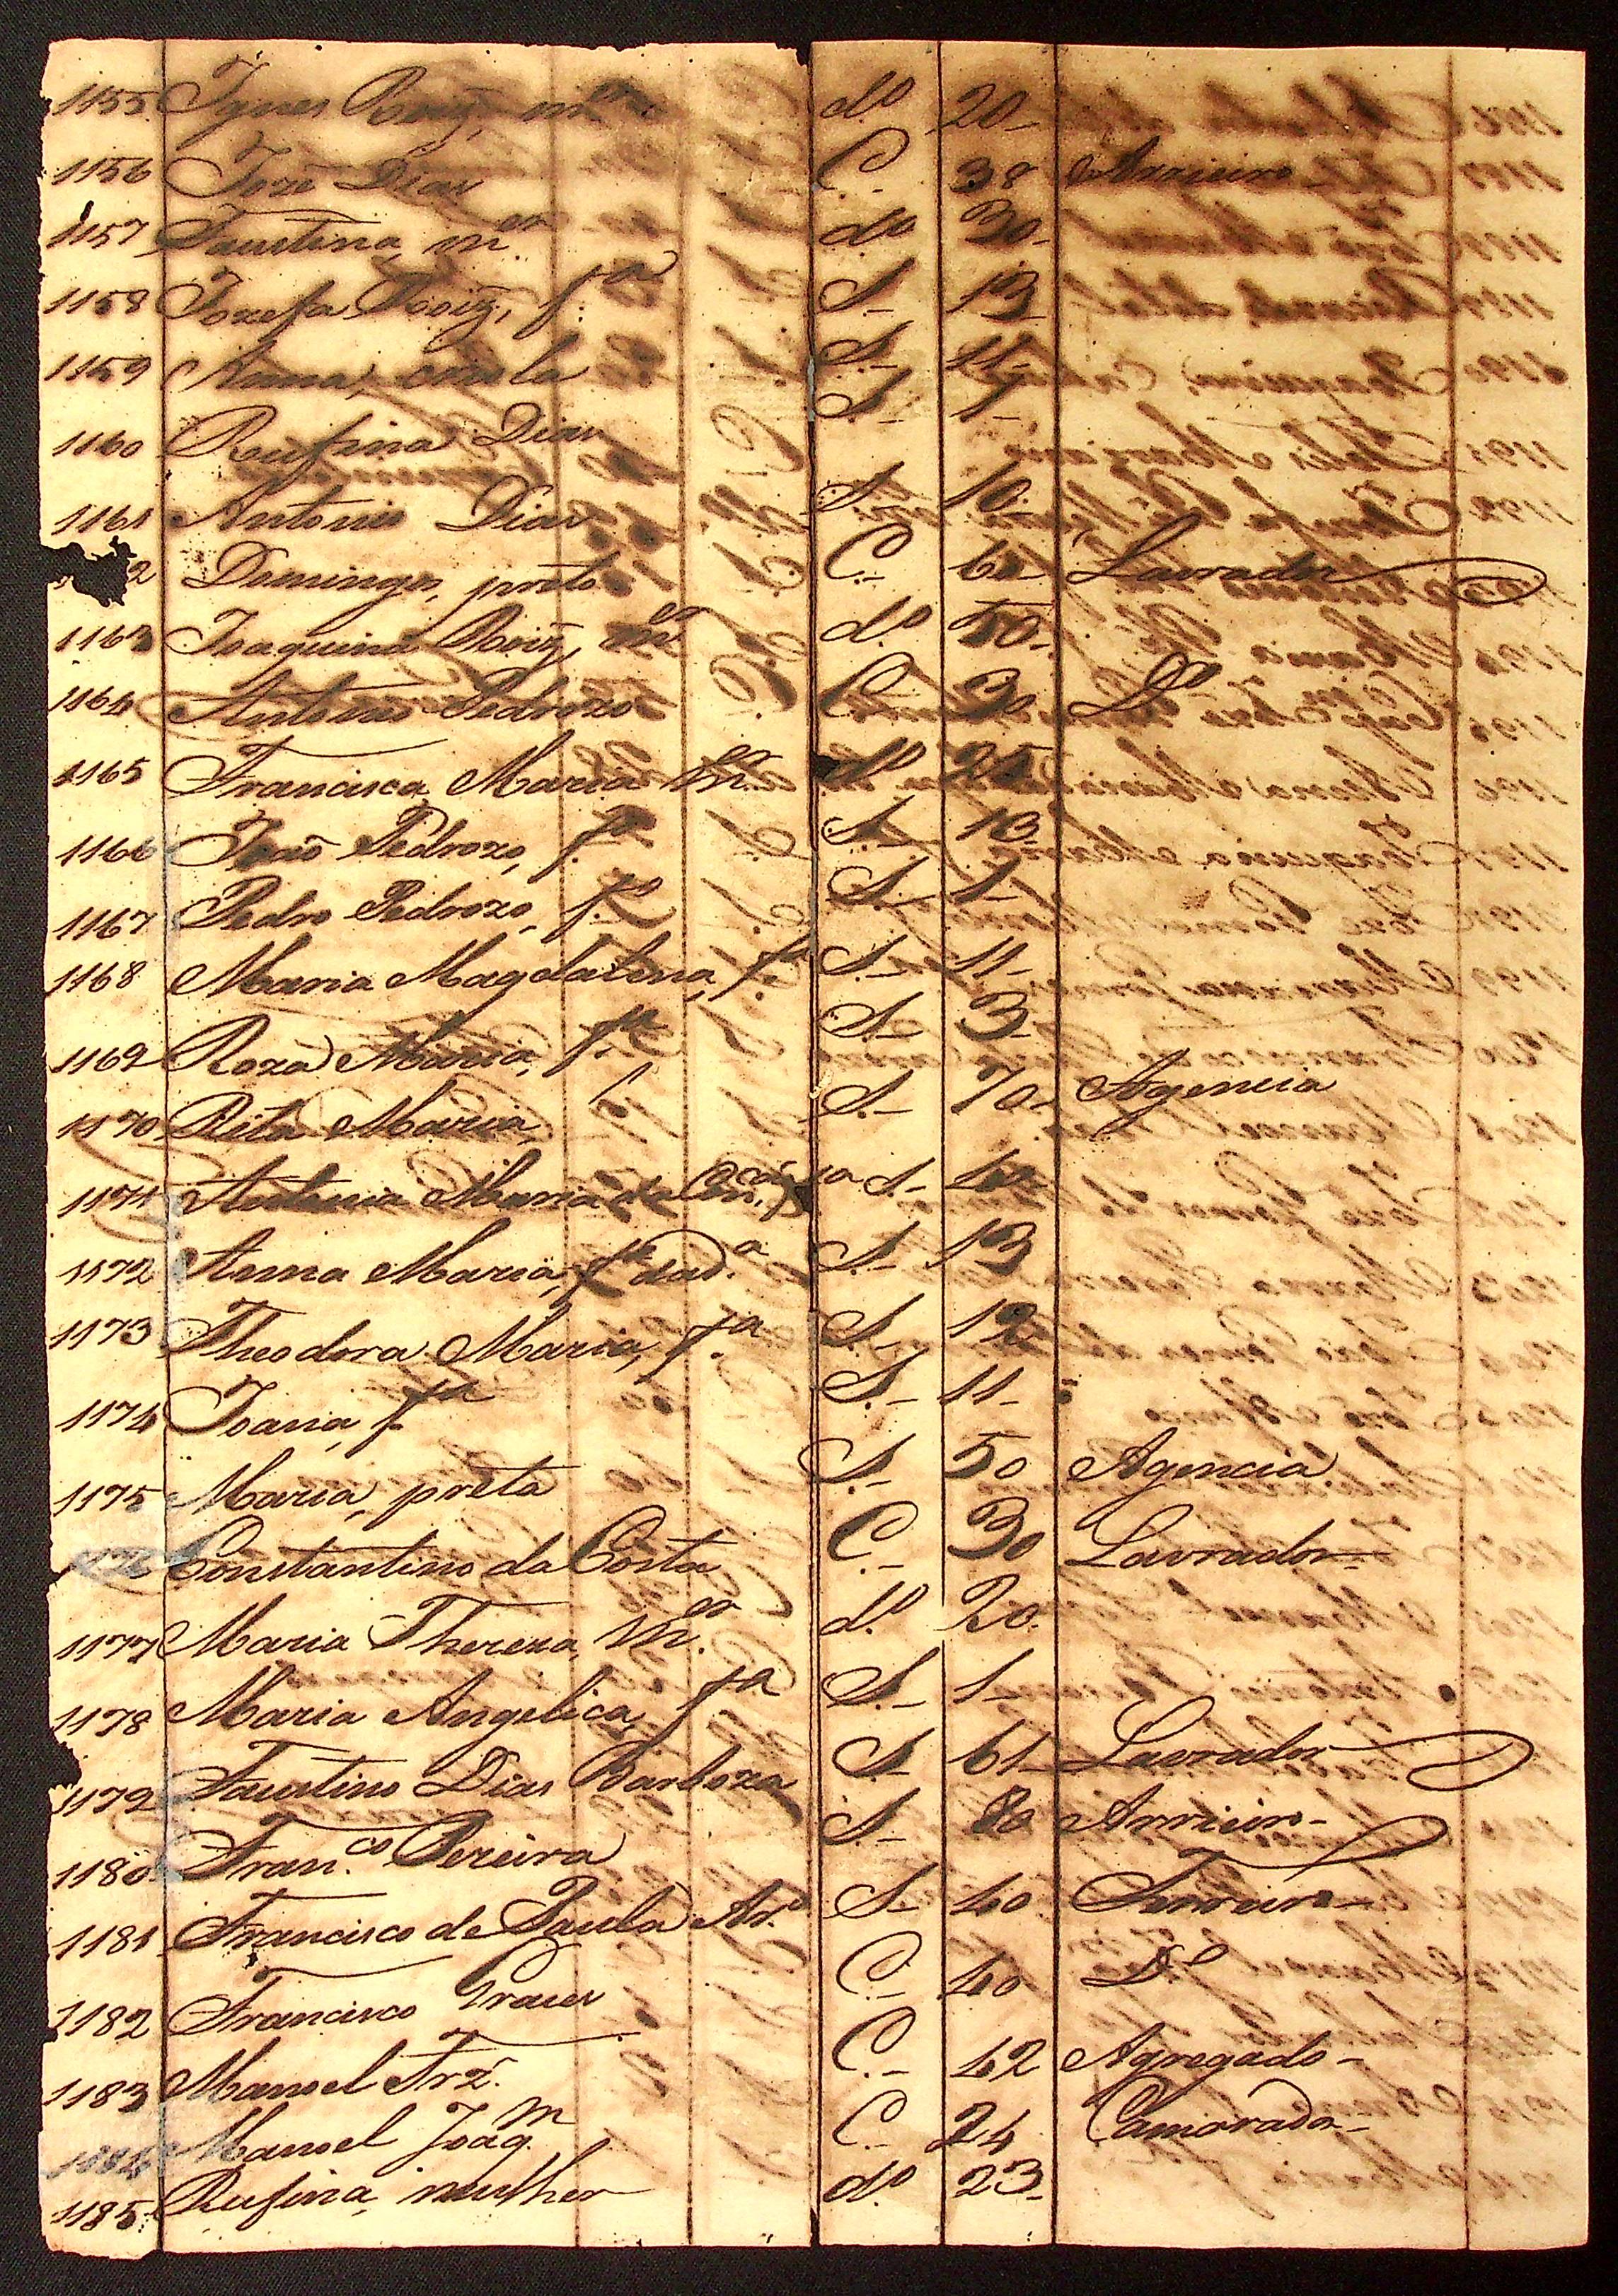 1155 Ignes Roiz, m.er d.o 20
1156 Joze Dias C. 38 Arrieiro
1157 Faustina, m.er d.o 30
1158 Jozefa Roiz, f.a S. 13
1159 Joana, crioula S. 11
1160 Rufina Dias S. 1
1161 Antonio Dias S. 10
2 Domingos, preto C. 60 Lavrador
1163 Joaquina Roiz, m.er d.o 50
1164 Antonio Pedrozo C. 30 D.o
1165 Francisca Maria m.er d.o 25
1166 João Pedrozo, f.o S. 13
1167 Pedro Pedrozo, f.o S. 1
1168 Maria Magdalena, f.a S. 11
1169 Roza Maria, f.a S. 3
1170 Rita Maria, S. 70 Agencia
1171 Antonia Maria da Con.cam f.a S. 40
1172 Anna Maria, f.a da d.a S. 13
1173 Theodora Maria, f.a S. 12
1174 Joana, f.a S. 11
1175 Maria, preta S. 50 Agencia
1176 Constantino da Costa C. 30 Lavrador
1177 Maria Thereza, m.er d.o 20
1178 Maria Angelica, f.a S. 1
1179 Faustino Dias Barboza S. 61 Lavrador
1180 Fran.co Pereira S. 80 Arrieiro
1181 Francisco de Paula Ar.o S. 40 Ferreiro
1182 Francisco C. 40 D.o
1183 Manoel Frz. C. 42 Agregado
1184 Manoel Joaq.m C. 24 Camarada
1185 Rufina, mulher d.o 23